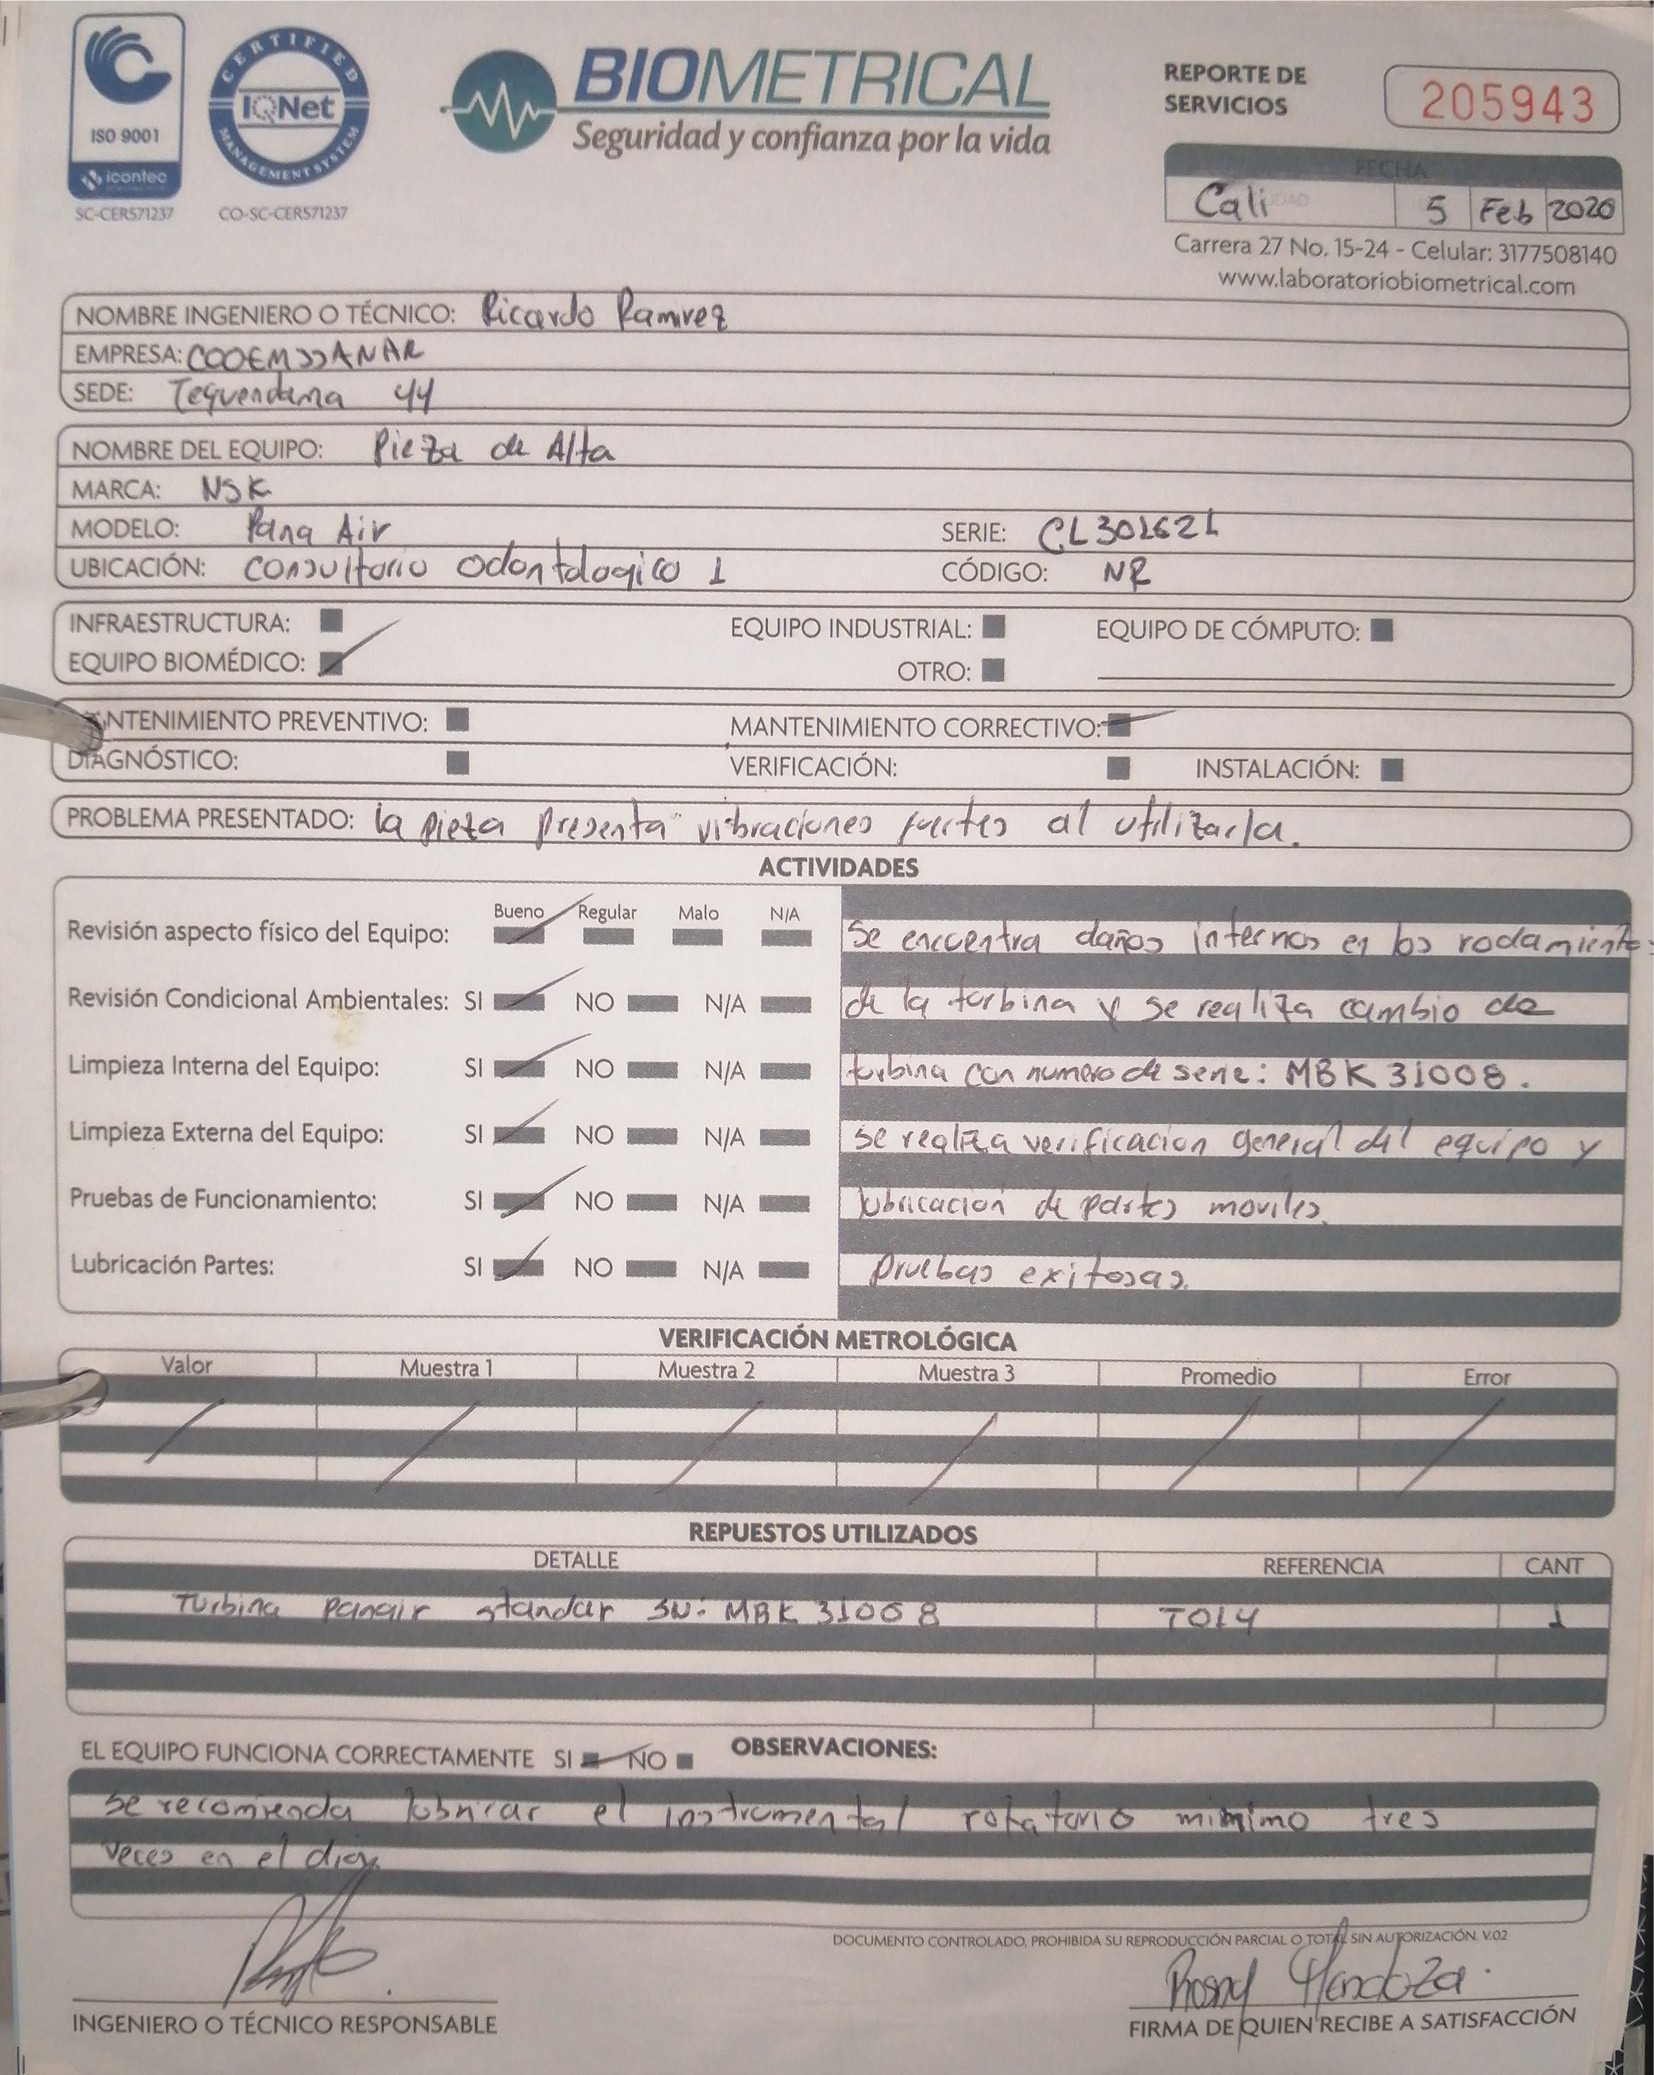 ISO 9001
icontec
SC-CER571237
CERTIFIED
IQNet
MANAGEMENT SYSTEM
CO-SC-CER571237
BIOMETRICAL
Seguridad y confianza por la vida
REPORTE DE
SERVICIOS
205943
FECHA
Cali 5 Feb 2020
Carrera 27 No. 15-24 - Celular: 3177508140
www.laboratoriobiometrical.com
NOMBRE INGENIERO O TÉCNICO: Ricardo Ramirez
EMPRESA: COOEMSSANAR
SEDE: Tequendama 44
NOMBRE DEL EQUIPO: Pieza de Alta
MARCA: NSK
MODELO: Pana Air SERIE: CL301621
UBICACIÓN: Consultorio Odontologico 1 CÓDIGO: NR
INFRAESTRUCTURA: EQUIPO INDUSTRIAL: EQUIPO DE CÓMPUTO:
EQUIPO BIOMÉDICO: OTRO:
NTENIMIENTO PREVENTIVO: MANTENIMIENTO CORRECTIVO:
DIAGNÓSTICO: VERIFICACIÓN: INSTALACIÓN:
PROBLEMA PRESENTADO: la pieza presenta vibraciones fuertes al utilizarla.
ACTIVIDADES
Bueno Regular Malo N/A
Revisión aspecto físico del Equipo: Se encuentra daños internos en los rodamientos
Revisión Condicional Ambientales: SI NO N/A de la turbina y se realiza cambio de
Limpieza Interna del Equipo: SI NO N/A turbina con numero de serie: MBK 31008.
Limpieza Externa del Equipo: SI NO N/A se realiza verificacion general del equipo y
Pruebas de Funcionamiento: SI NO N/A lubricacion de partes moviles.
Lubricación Partes: SI NO N/A pruebas exitosas.
VERIFICACIÓN METROLÓGICA
Valor Muestra 1 Muestra 2 Muestra 3 Promedio Error
REPUESTOS UTILIZADOS
DETALLE REFERENCIA CANT
Turbina panair standar SN: MBK 31008 T014 1
EL EQUIPO FUNCIONA CORRECTAMENTE SI NO OBSERVACIONES:
se recomienda lubricar el instrumental rotatorio minimo tres
veces en el dia.
DOCUMENTO CONTROLADO, PROHIBIDA SU REPRODUCCIÓN PARCIAL O TOTAL SIN AUTORIZACIÓN. V.02
Mendoza.
INGENIERO O TÉCNICO RESPONSABLE
FIRMA DE QUIEN RECIBE A SATISFACCIÓN